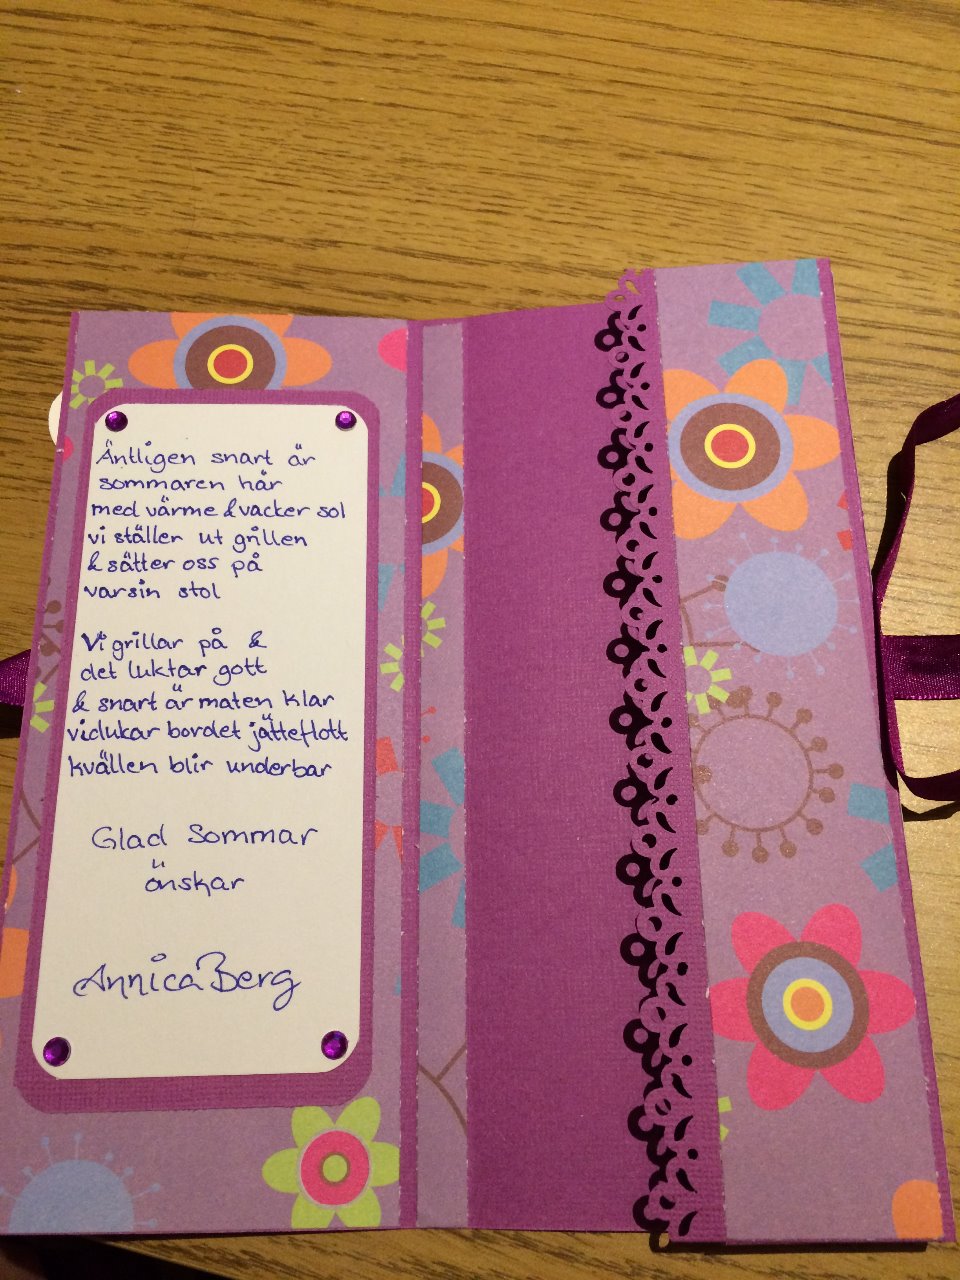 Äntligen snart är
sommaren här
med värme & vacker sol
vi ställer ut grillen
& sätter oss på
varsin stol
Vi grillar på &
det luktar gott
& snart är maten klar
vi dukar bordet jätteflott
kvällen blir underbar
Glad Sommar
önskar
Annica Berg